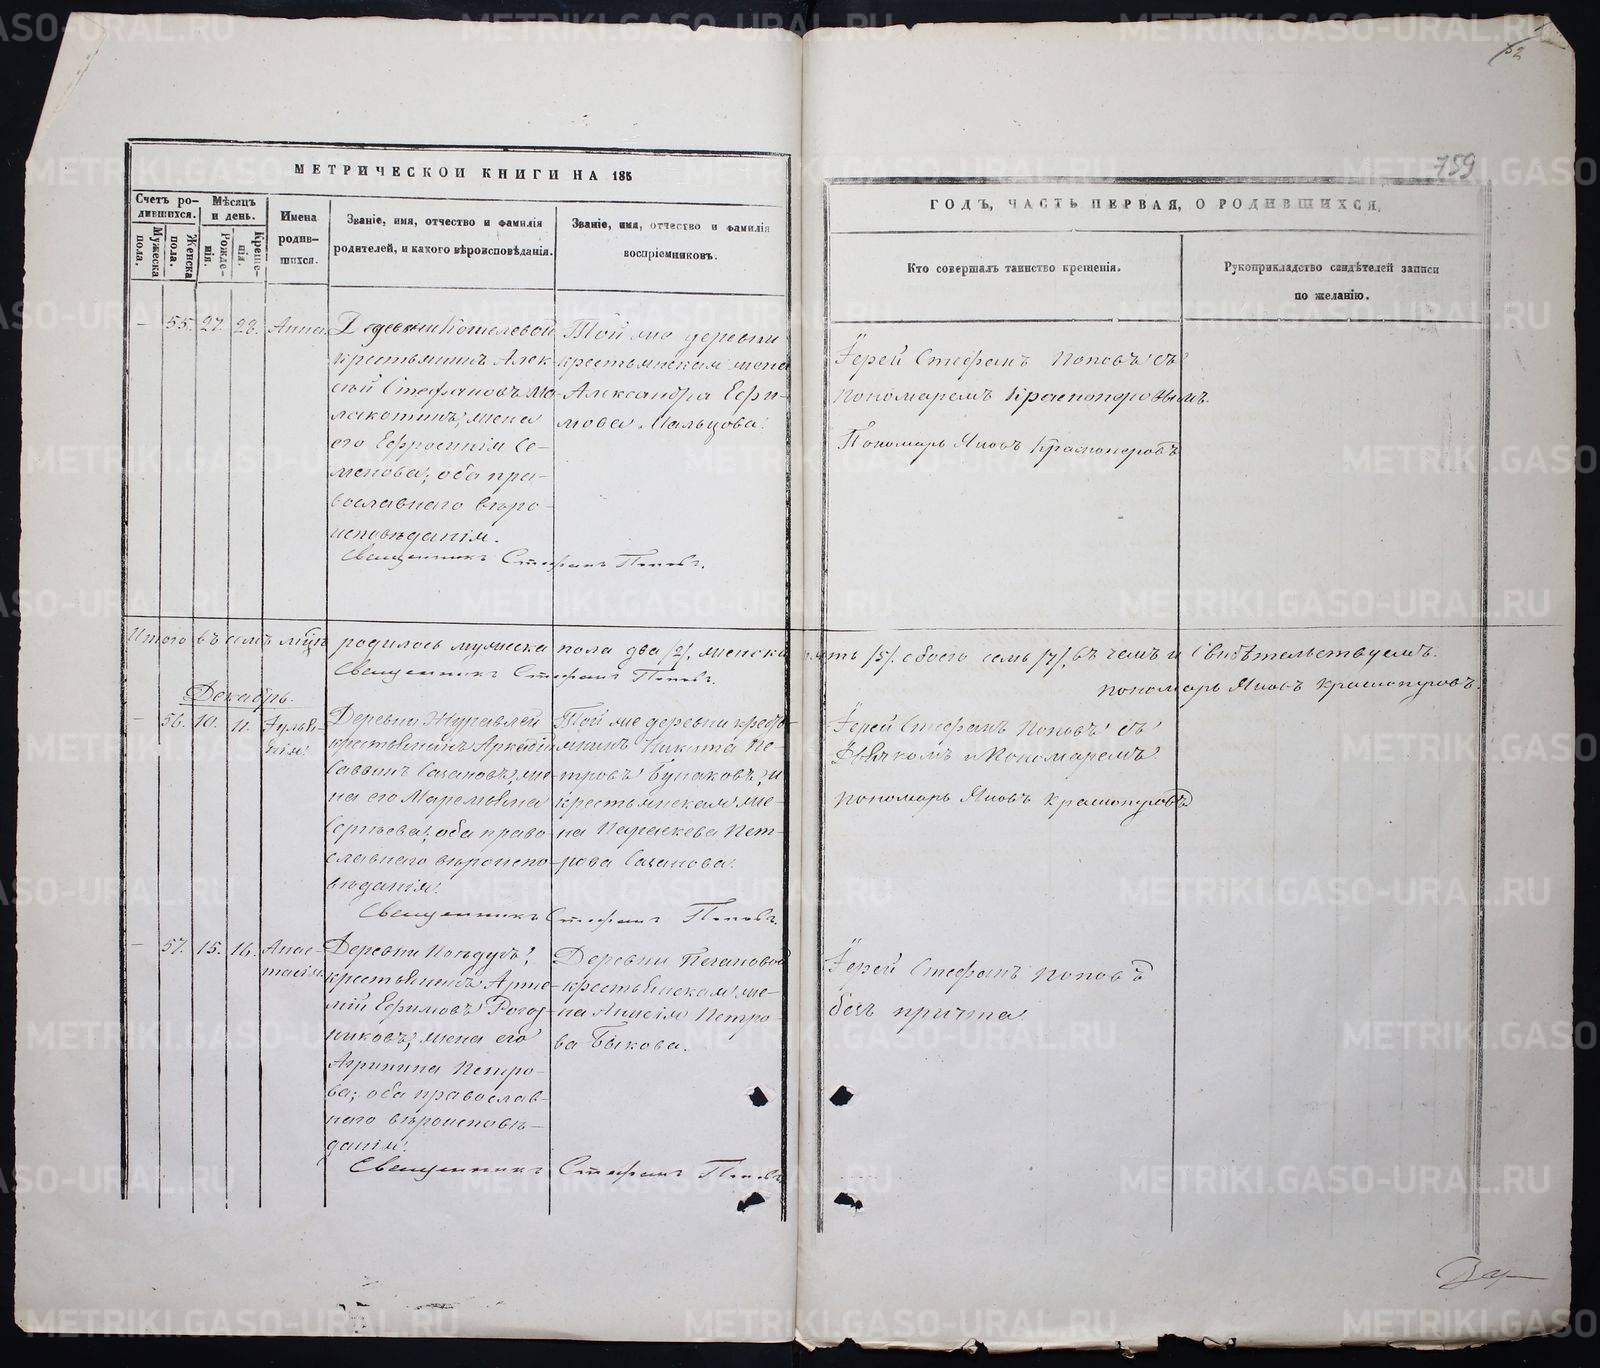 52
759
МЕТРИЧЕСКОЙ КНИГИ НА 185
ГОДЪ, ЧАСТЬ ПЕРВАЯ, О РОДИВШИХСЯ.
Счетъ родившихся.
Мужеска пола.
Женска пола.
Мѣсяцъ и день.
Рожденія.
Крещенія.
Имена родившихся.
Званіе, имя, отчество и фамилія родителей, и какого вѣроисповѣданія.
Званіе, имя, отчество и фамилія воспріемниковъ.
Кто совершалъ таинство крещенія.
Рукоприкладство свидѣтелей записи по желанію.
— 55. 27. 28. Анна
Деревни Кошелевой
крестьянинъ Алек-
сѣй Стефановъ Ма-
лакотинъ; жена
его Ефросинія Се-
менова; оба пра-
вославнаго вѣро-
исповѣданія.
Той же деревни
крестьянская жена
Александра Ефи-
мова Мальцова.
Іерей Стефанъ Поповъ съ
пономаремъ Красноперовымъ.
Пономарь Яковъ Красноперовъ
Священникъ Стефанъ Поповъ.
Итого въ семъ мѣсяцѣ родилось мужеска пола два /2/, женска пять /5/ обоего семь /7/, въ чемъ и свидѣтельствуемъ.
Священникъ Стефанъ Поповъ.
пономарь Яковъ Красноперовъ.
Декабрь.
— 56. 10. 11. Іуліа-
нія.
Деревни Журавлей
крестьянинъ Аркадій
Саввинъ Сазановъ; же-
на его Маремьяна
Сергѣева; оба право-
славнаго вѣроиспо-
вѣданія.
Той же деревни кресть-
янинъ Никита Пе-
тровъ Бунаковъ, и
крестьянская же-
на Параскева Пет-
рова Сазанова.
Іерей Стефанъ Поповъ съ
Дьячкомъ и Пономаремъ.
пономарь Яковъ Красноперовъ
Священникъ Стефанъ Поповъ.
— 57. 15. 16. Анас-
тасія.
Деревни
крестьянинъ Арте-
мій Ефимовъ Рогоз-
никовъ; жена его
Агрипина Петро-
ва; оба православ-
наго вѣроисповѣ-
данія.
Деревни Печановой
крестьянская же-
на Анисія Петро-
ва Быкова.
Іерей Стефанъ Поповъ
безъ причта
Священникъ Стефанъ Поповъ
METRIKI.GASO-URAL.RU